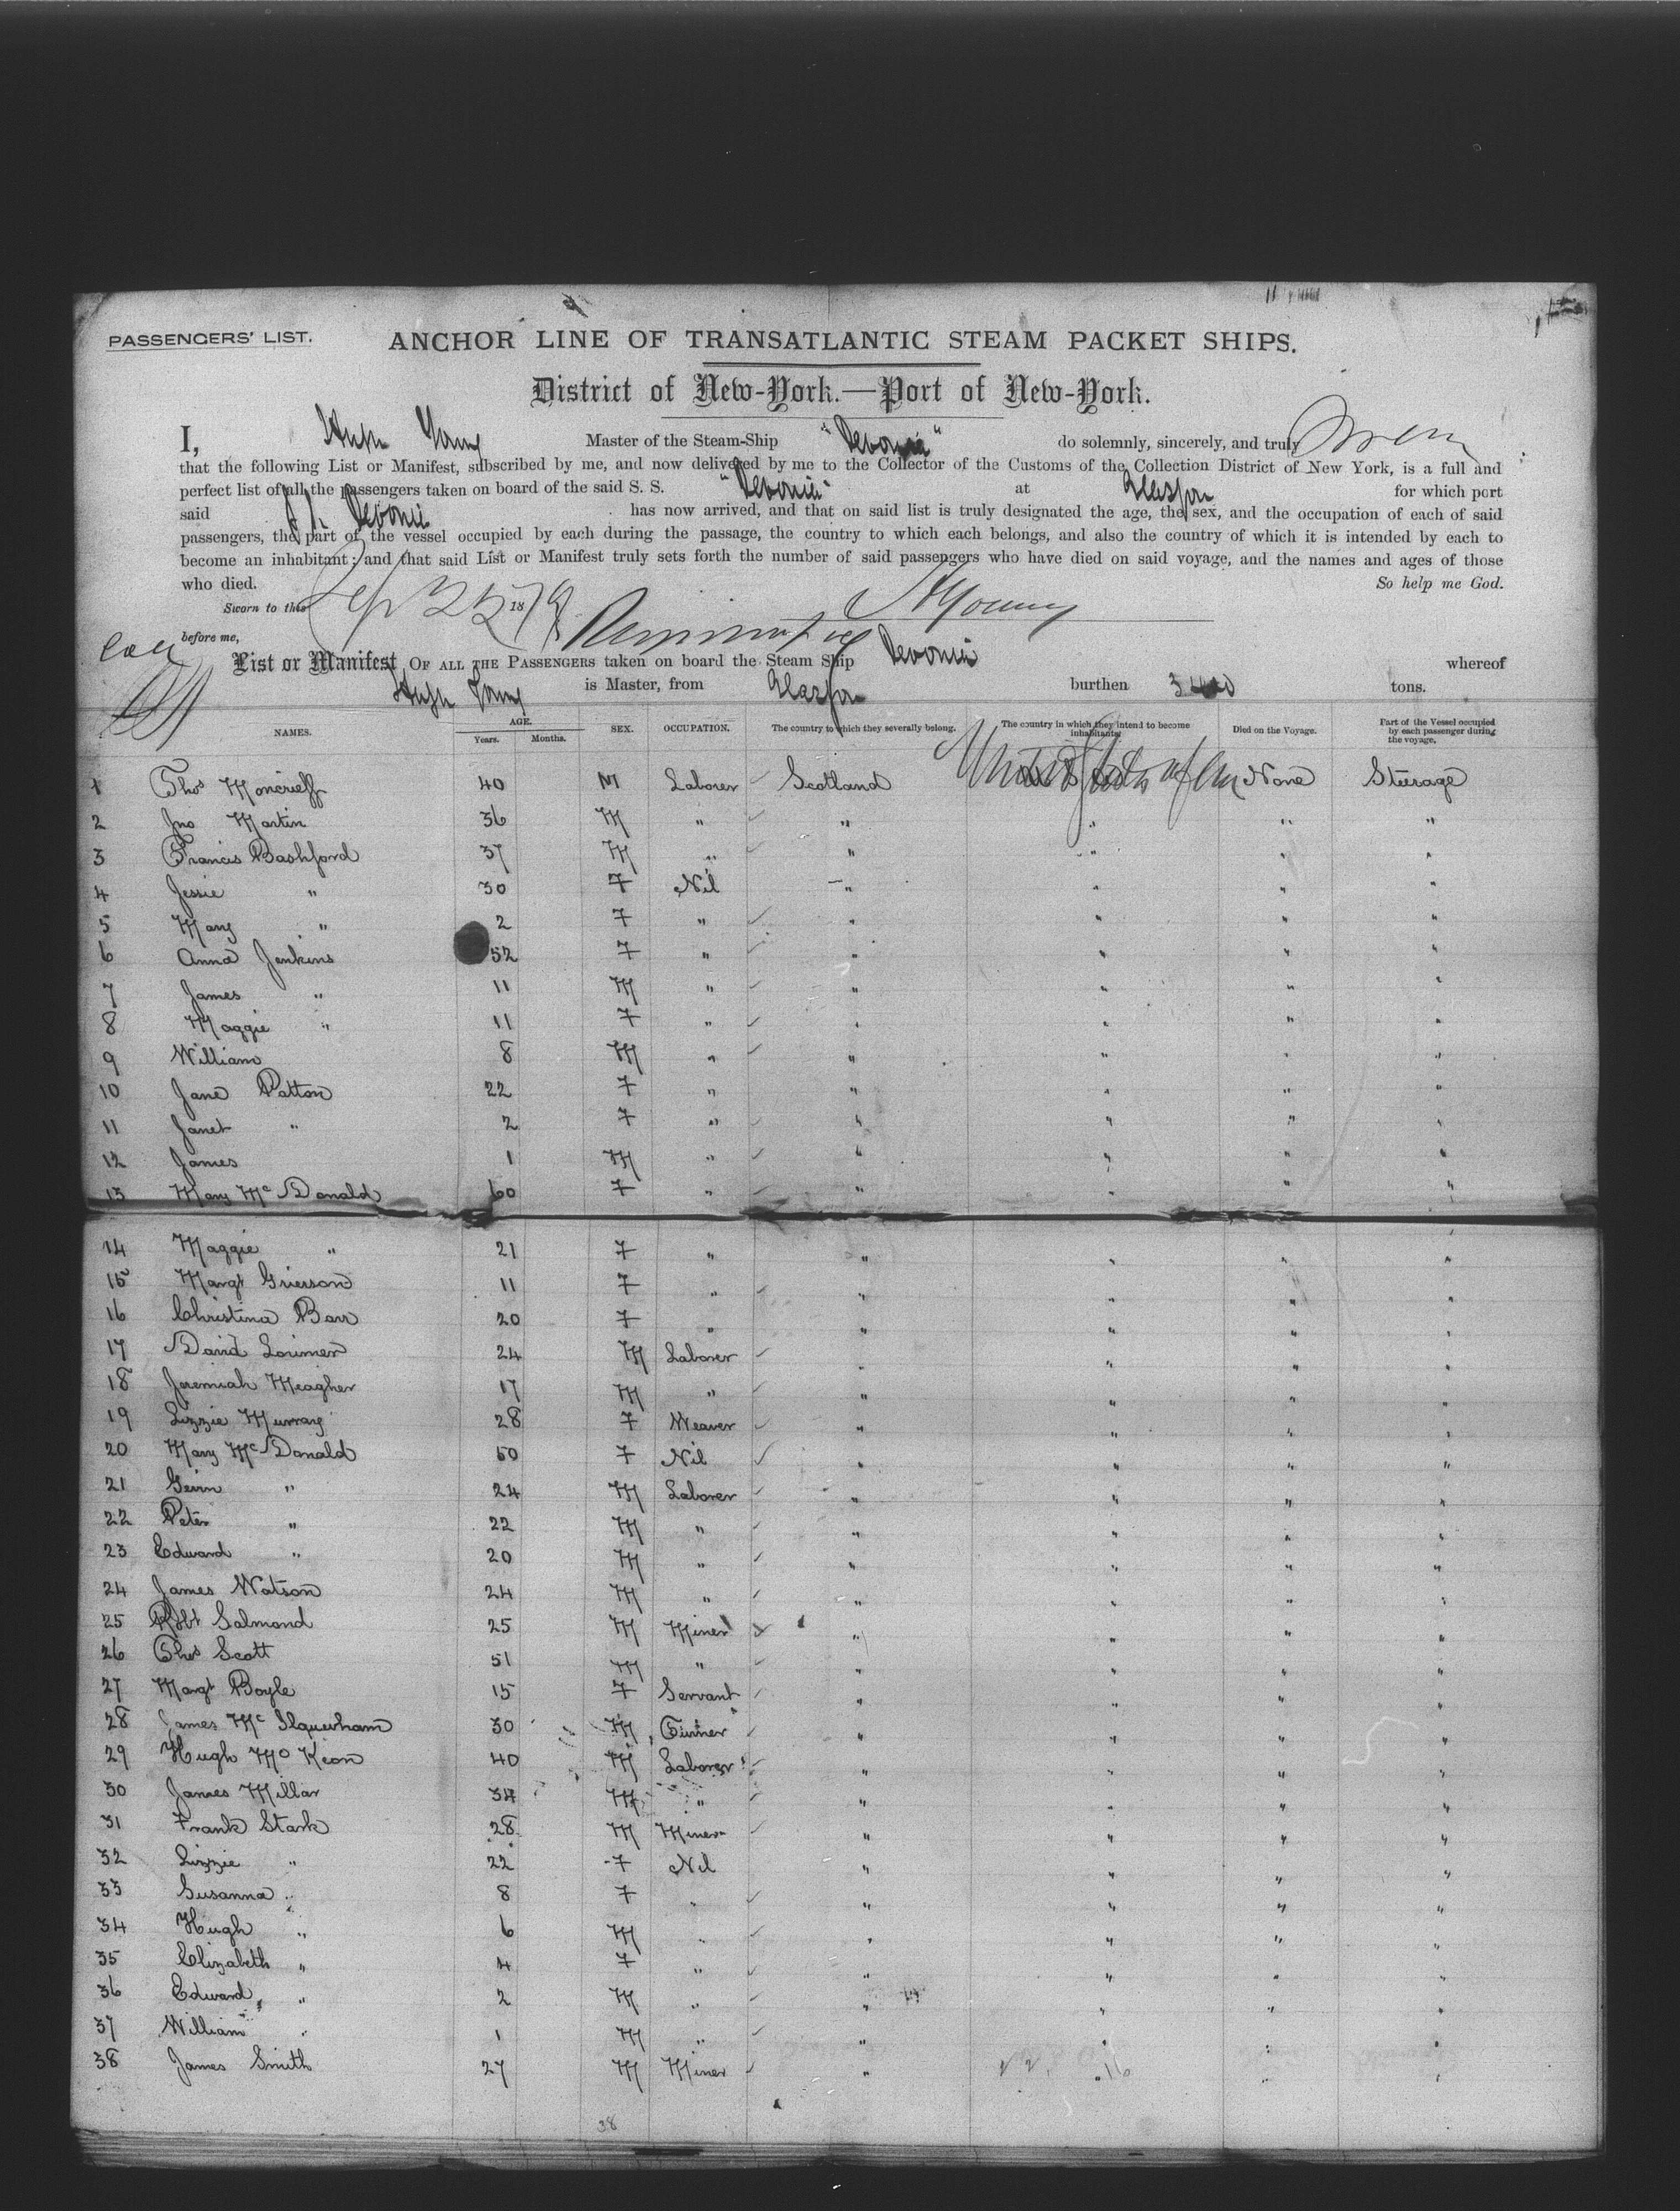 PASSENGERS' LIST.
ANCHOR LINE OF TRANSATLANTIC STEAM PACKET SHIPS.
District of New-York.—Port of New-York.
I, Hugh Young Master of the Steam-Ship "Devonia" do solemnly, sincerely, and truly Swear
that the following List or Manifest, subscribed by me, and now delivered by me to the Collector of the Customs of the Collection District of New York, is a full and
perfect list of all the passengers taken on board of the said S. S. "Devonia" at Glasgow for which port
said Devonia has now arrived, and that on said list is truly designated the age, the sex, and the occupation of each of said
passengers, the part of the vessel occupied by each during the passage, the country to which each belongs, and also the country of which it is intended by each to
become an inhabitant; and that said List or Manifest truly sets forth the number of said passengers who have died on said voyage, and the names and ages of those
who died. So help me God.
Sworn to this Sep 25 1879 HYoung
before me,
List or Manifest OF ALL THE PASSENGERS taken on board the Steam Ship Devonia whereof
Hugh Young is Master, from Glasgow burthen tons.
NAMES. AGE. Years. Months. SEX. OCCUPATION. The country to which they severally belong. The country in which they intend to become inhabitants. Died on the Voyage. Part of the Vessel occupied by each passenger during the voyage.
1 Thos Moncrieff 40 M Laborer Scotland United States of Am None Steerage
2 Jno Martin 36 M " " " " "
3 Francis Bashford 37 M " " " " "
4 Jessie " 30 F Nil " " " "
5 Mary " 2 F " " " " "
6 Anna Jenkins 52 F " " " " "
7 James " 11 M " " " " "
8 Maggie " 11 F " " " " "
9 William 8 M " " " " "
10 Jane Patton 22 F " " " " "
11 Janet " 2 F " " " " "
12 James 1 M " " " " "
13 Mary McDonald 60 F " " " " "
14 Maggie " 21 F " " " " "
15 Margt Grierson 11 F " " " " "
16 Christina Barr 20 F " " " " "
17 David Lorimer 24 M Laborer " " " "
18 Jeremiah Meagher 17 M " " " " "
19 Lizzie Murray 28 F Weaver " " " "
20 Mary McDonald 50 F Nil " " " "
21 " 24 M Laborer " " " "
22 Peter " 22 M " " " " "
23 Edward " 20 M " " " " "
24 James Watson 24 M " " " " "
25 Robt Salmond 25 M Miner " " " "
26 Thos Scott 51 M " " " " "
27 Margt Boyle 15 F Servant " " " "
28 James Mc 30 M Turner " " " "
29 Hugh McKeon 40 M Laborer " " " "
30 James Millar 34 M " " " " "
31 Frank Stark 28 M Miner " " " "
32 Lizzie " 22 F Nil " " " "
33 Susanna " 8 F " " " " "
34 Hugh " 6 M " " " " "
35 Elizabeth " 4 F " " " " "
36 Edward " 2 M " " " " "
37 William " 1 M " " " " "
38 James Smith 27 M Miner " " " "
38